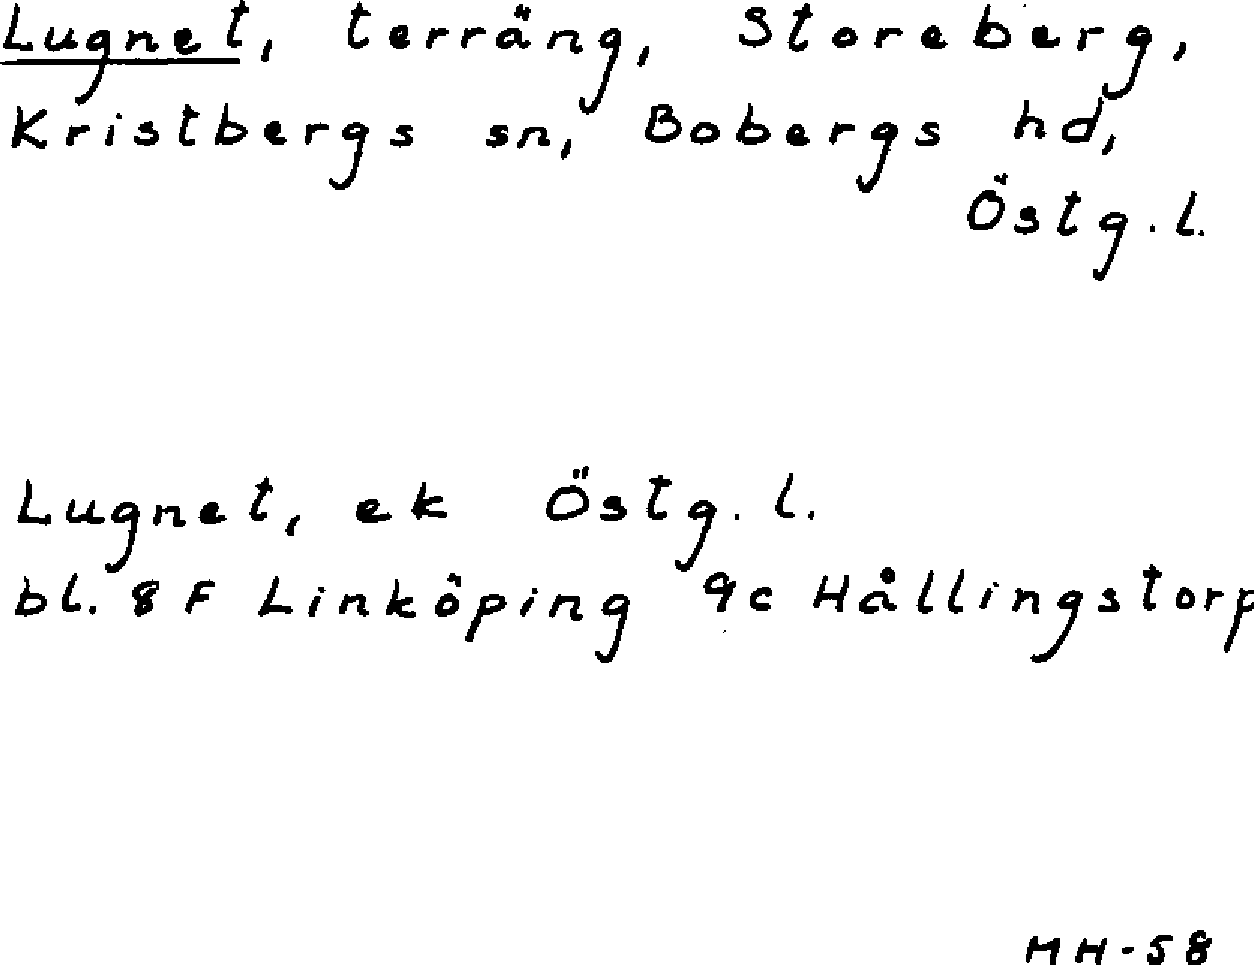 Lugnet, terräng, Storeberg,
Kristbergs sn, Bobergs hd,
Östg. l.
Lugnet, ek Östg. l.
bl. 8 F Linköping 9c Hållingstorp
MH-58